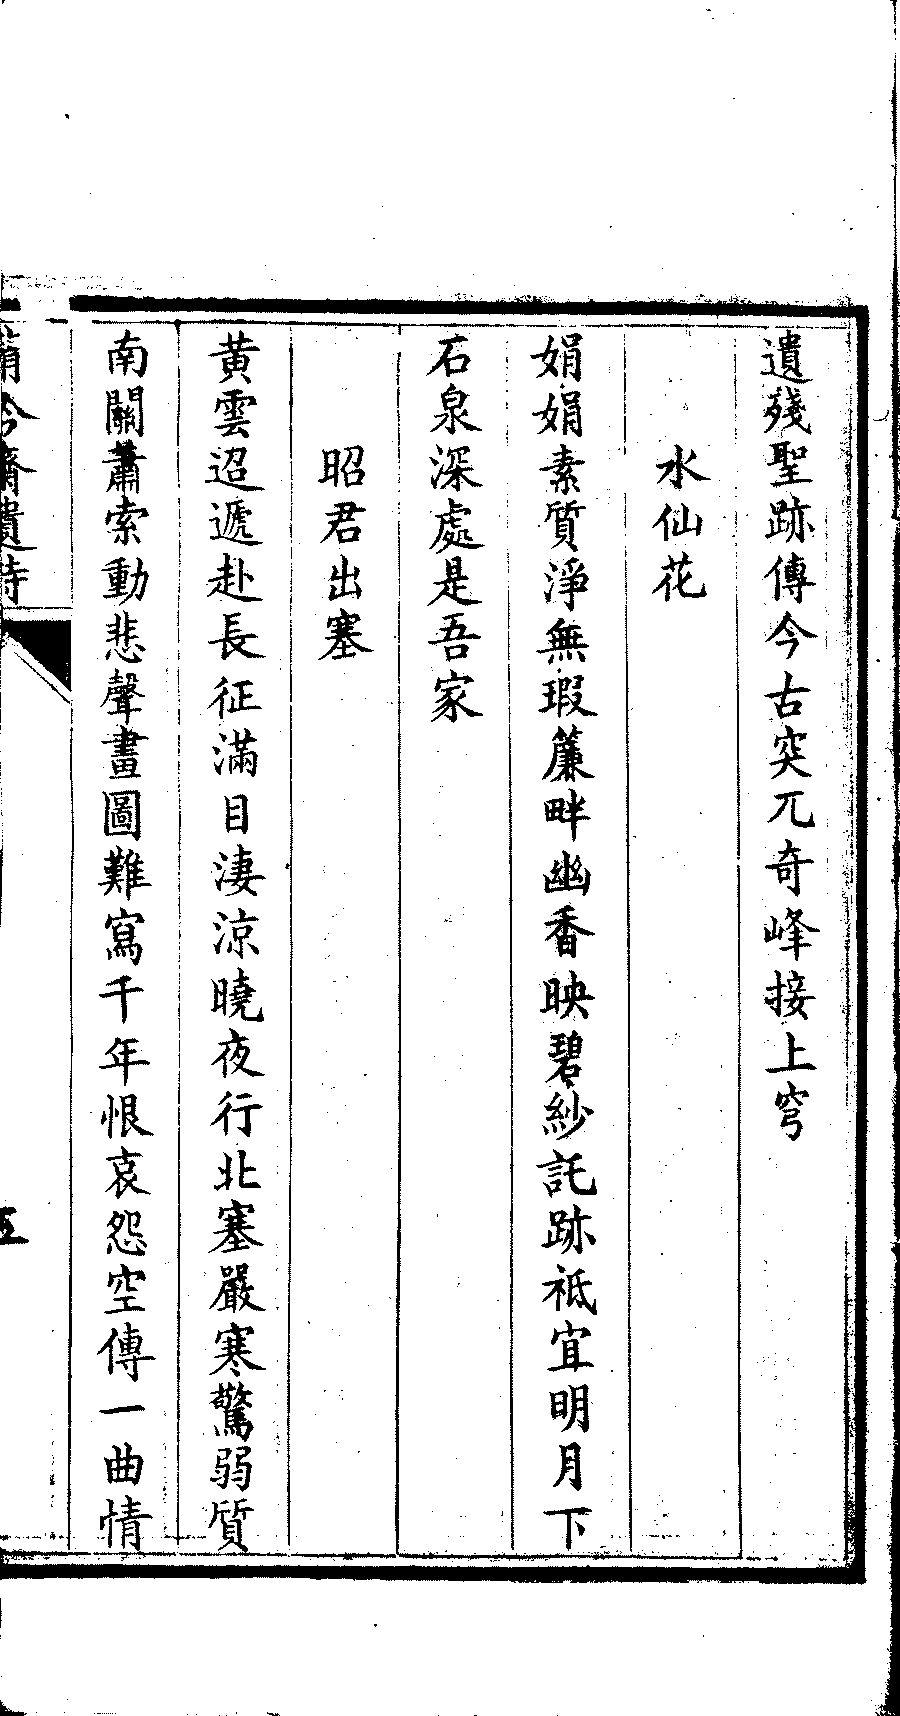 遺殘聖跡傳今古突兀奇峰接上穹
水仙花
娟娟素質淨無瑕簾畔幽香映碧紗託跡祗宜明月下
石泉深處是吾家
昭君出塞
黃雲迢遞赴長征滿目淒涼曉夜行北塞嚴寒驚弱質
南關蕭索動悲聲畫圖難寫千年恨哀怨空傳一曲情
吟齋遺詩
五